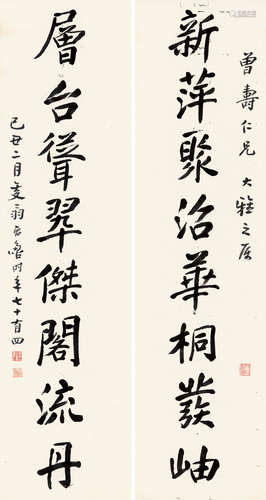 曾壽仁兄 大雅之屬
新萍聚沼華桐發岫
層台聳翠傑閣流丹
己丑二月
時年七十有四